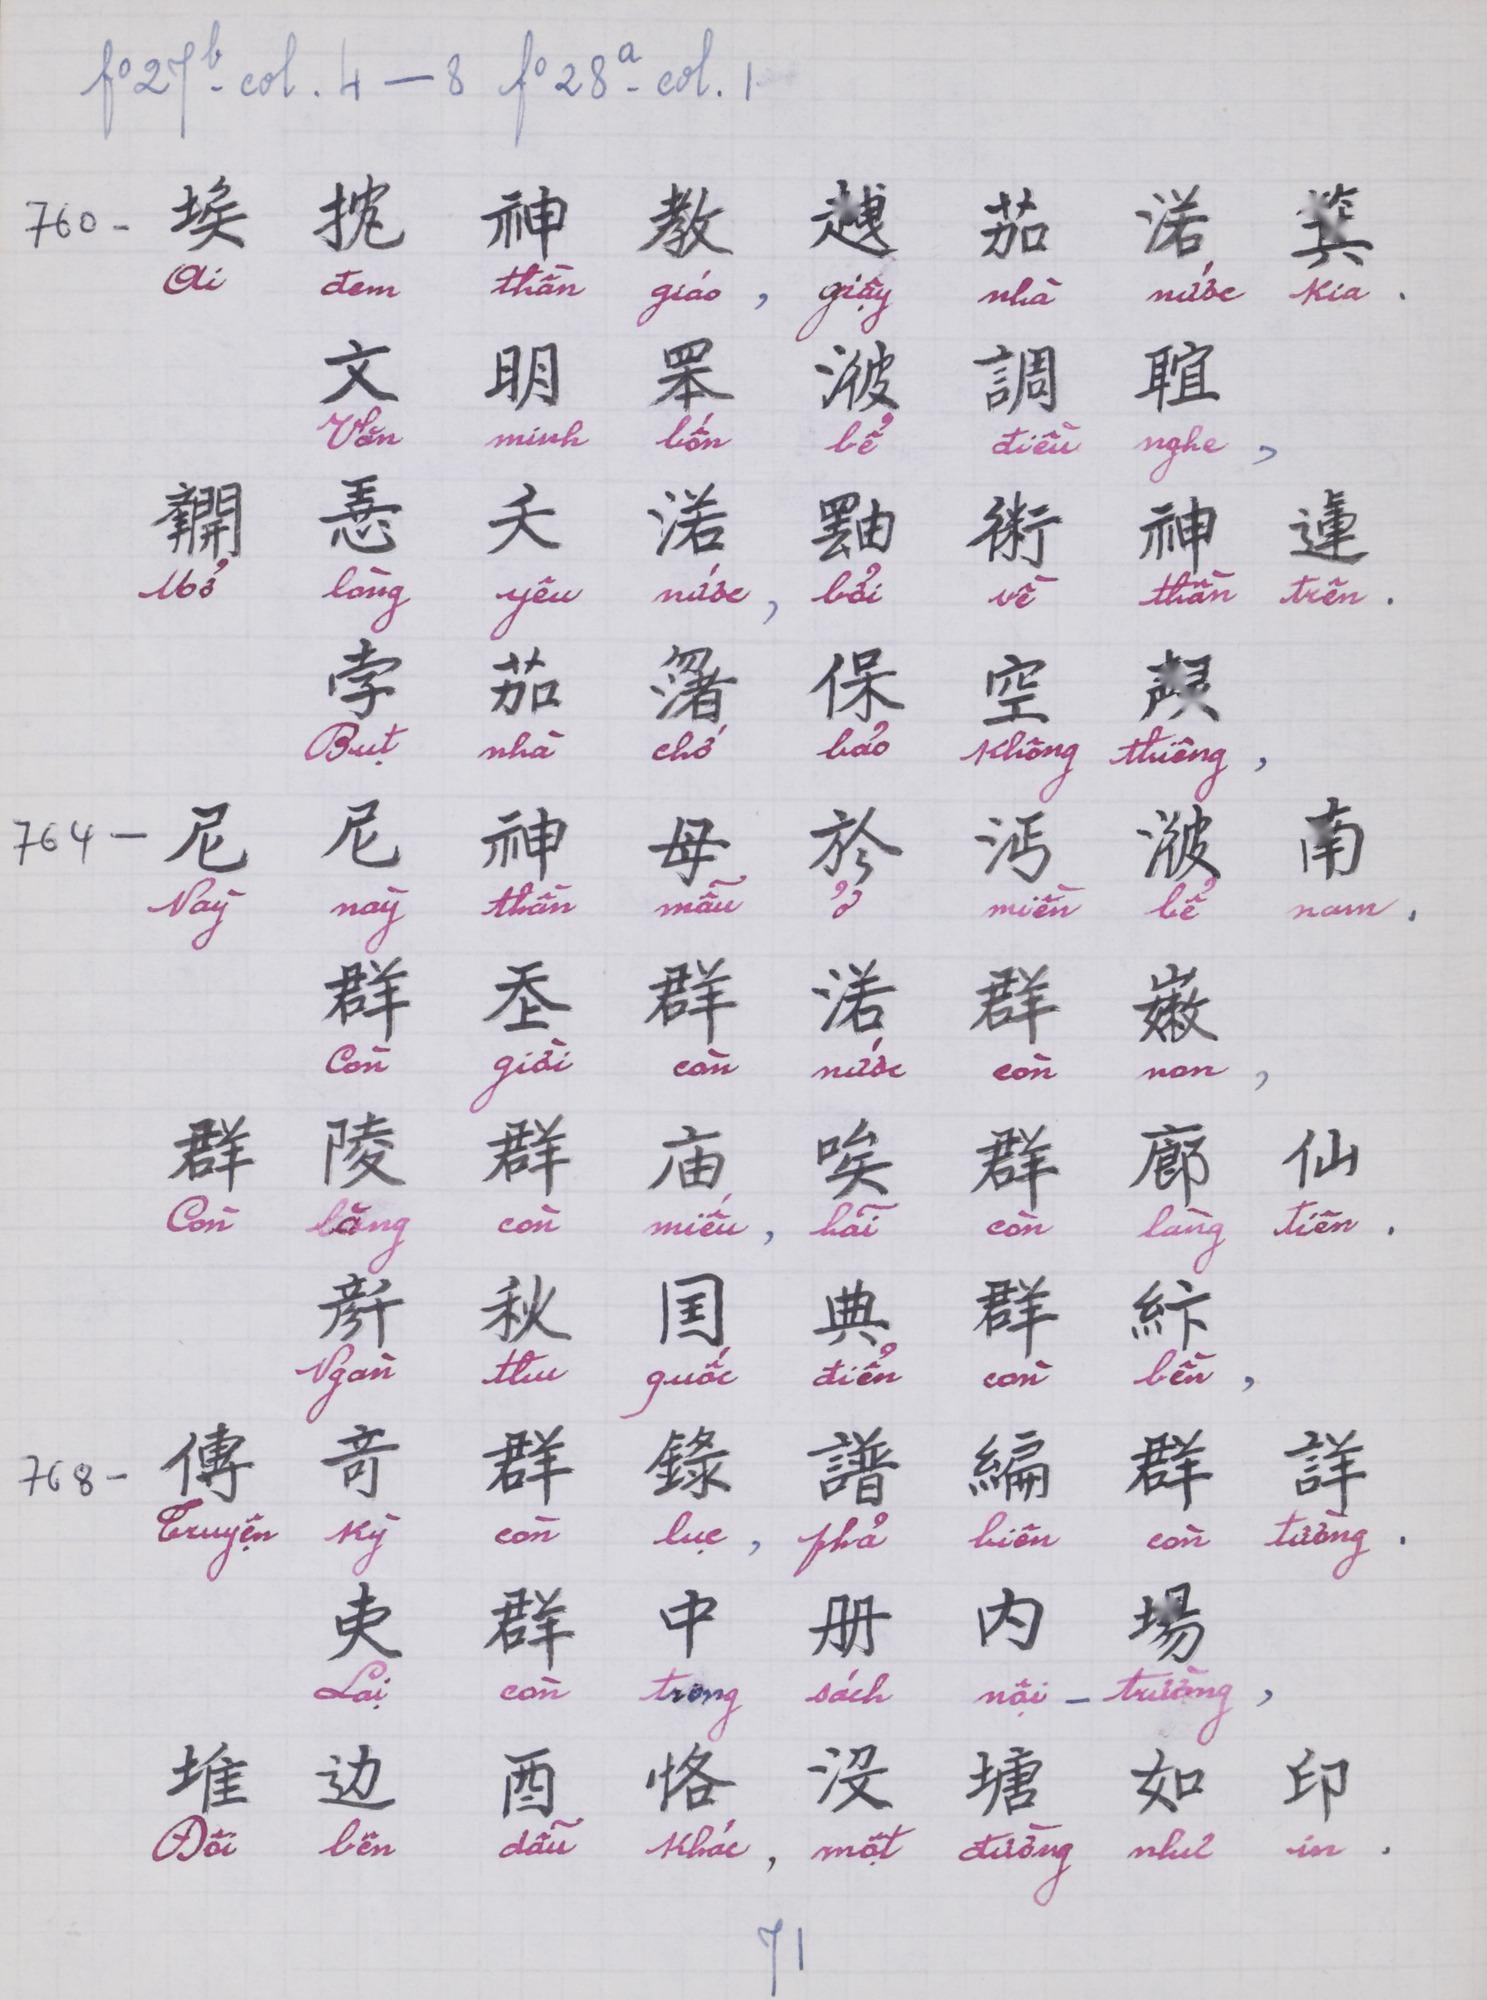 fº 27ᵇ - col. 4 — 8 fº 28ᵃ - col. 1
760 - 埃 抌 神 教 茄 渃
Ai đem thần giáo , giậy nhà nước kia .
文 明 罘 調 聢
Văn minh bốn bể điều nghe ,
悪 夭 渃 術 神 蓮
Mở lòng yêu nước , bởi về thần trên .
孛 茄 保 空
Bụt nhà chớ bảo không thiêng ,
764 — 尼 尼 神 母 於 沔 南
Này này thần mẫu ở miền bể nam .
群 群 渃 群
Còn giời còn nước còn non ,
群 陵 群 庙 唉 群 廊 仙
Còn lăng còn miếu , hãi còn làng tiên .
秋 囯 典 群
Ngàn thu quốc điển còn bền ,
768 - 傳 竒 群 錄 譜 編 群 詳
Truyện kỳ còn lục , phả biên còn tường .
吏 群 中 册 内 場
Lại còn trong sách nội - trường ,
堆 边 酉 恪 没 塘 如 印
Đôi bên dẫu khác , một đường như in .
71